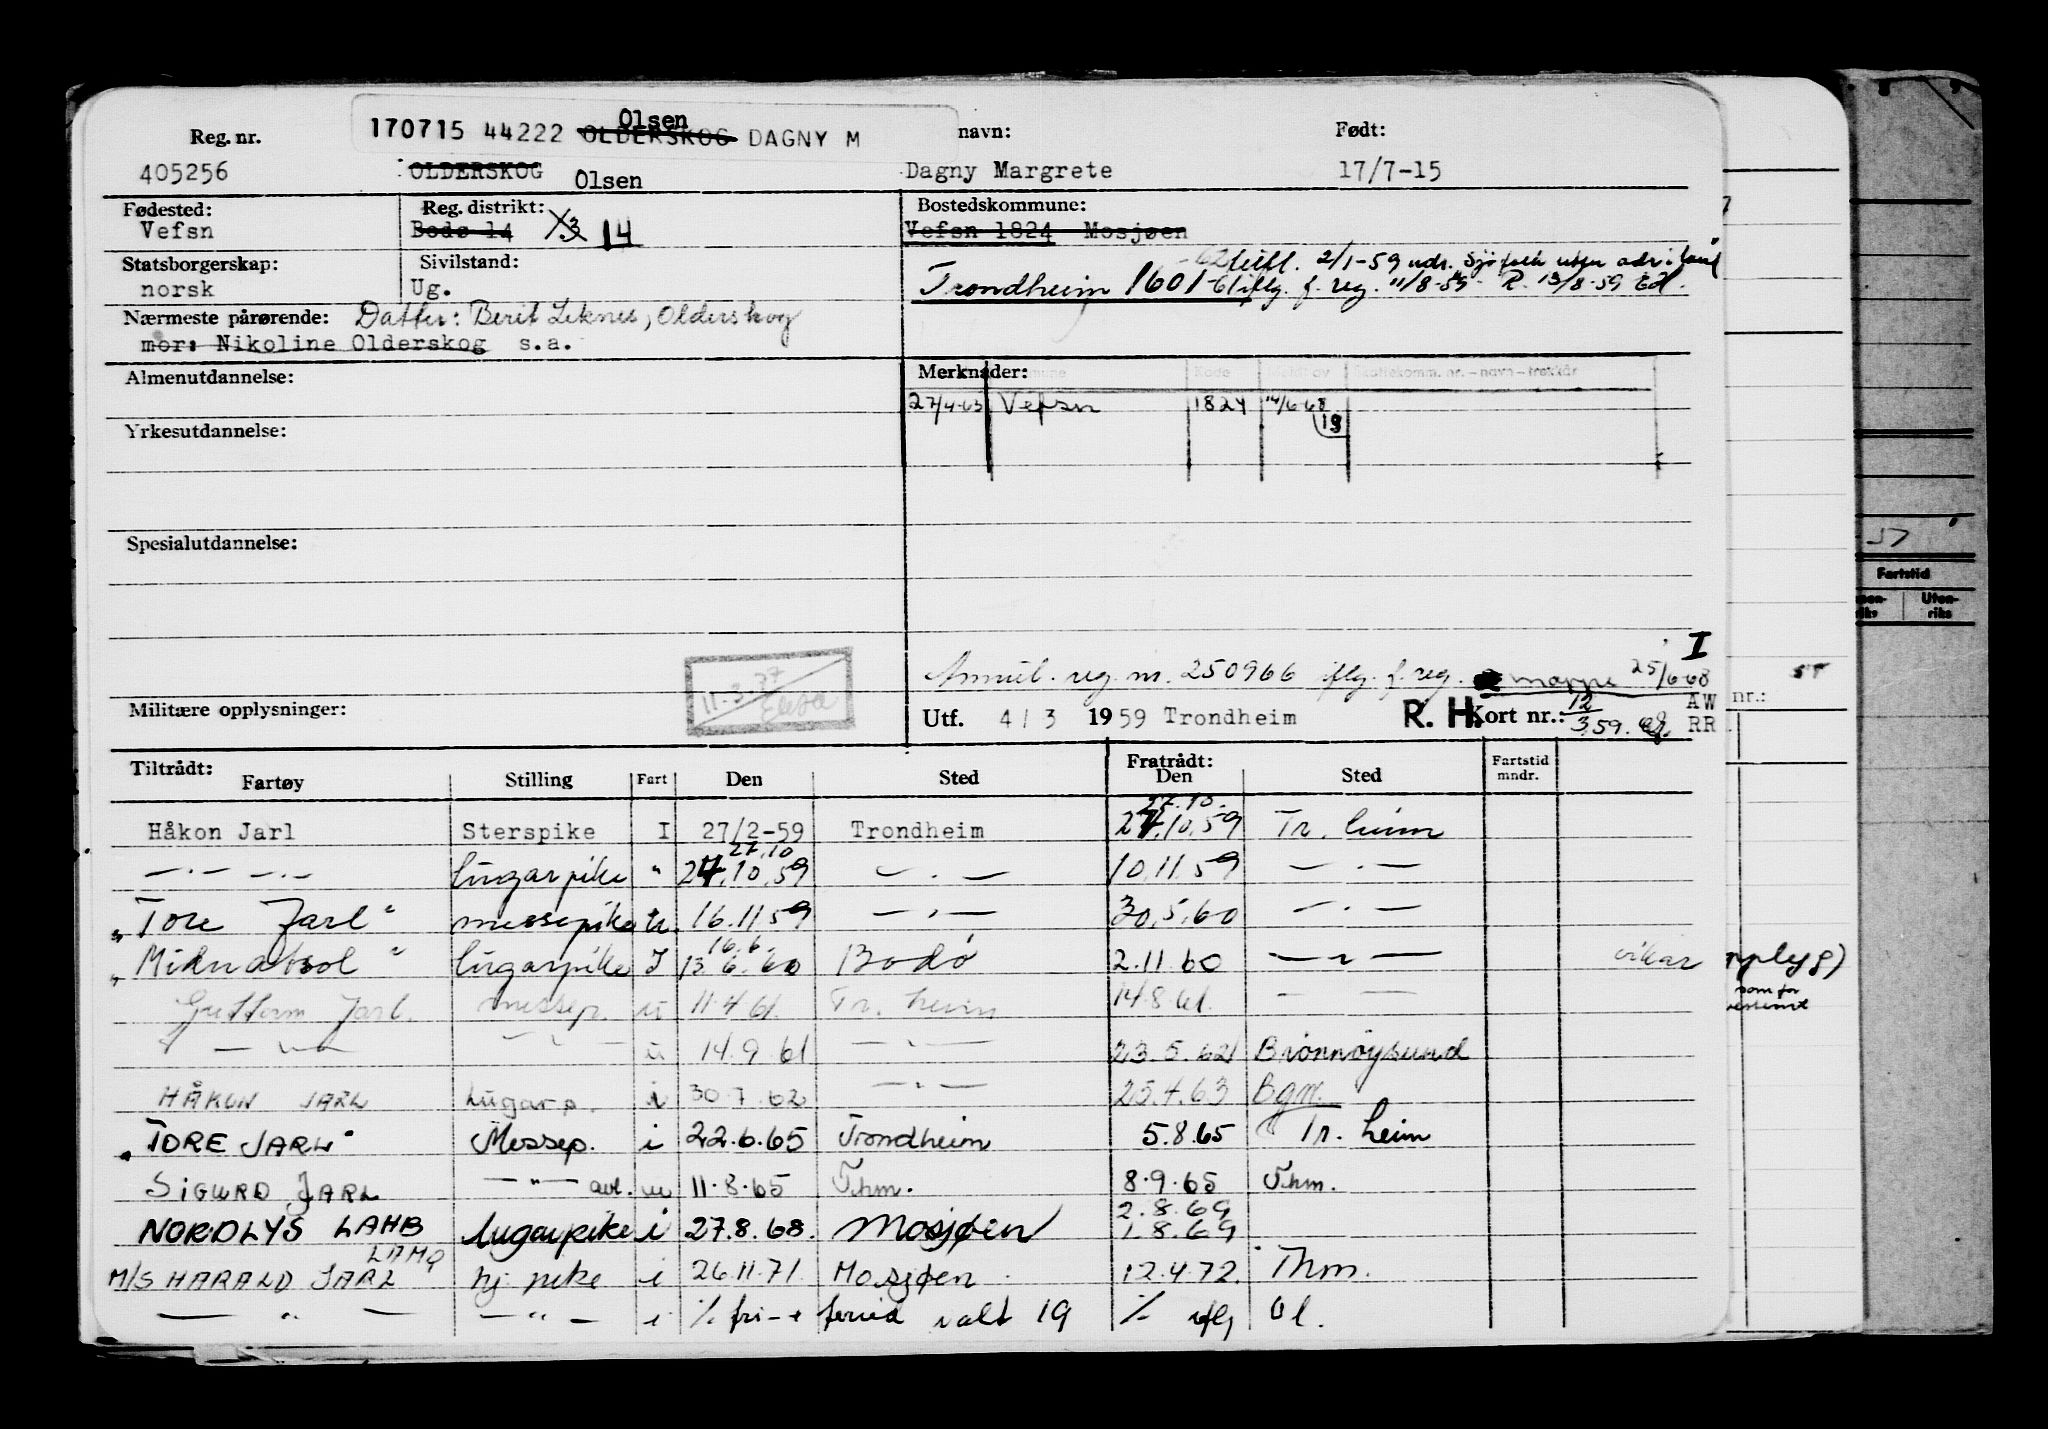 Olsen
170715 44222 OLDERSKOG DAGNY M
Reg. nr. navn: Født:
405256 OLDERSKOG Olsen Dagny Margrete 17/7-15
Fødested: Reg. distrikt: Bostedskommune:
Vefsn Bodø 14 X3 14 Vefsn 1824 Mosjøen
Statsborgerskap: Sivilstand:
norsk Ug.
-62 tilfl. 2/1-59 udr. Sjøfolk uten adr. i land
Trondheim 1601 -61 iflg. f. reg. 11/8-59 R. 13/8-59
Nærmeste pårørende: Datter: Berit Leknes, Olderskog
mor: Nikoline Olderskog s.a.
Almenutdannelse: Merknader:
27/4-63 Vefsn 1824 14/6-68
19
Yrkesutdannelse:
Spesialutdannelse:
I
Annul. reg. nr. 250966 iflg. f. reg. mappe 25/6-68
11.3.77
Militære opplysninger: Utf. 4/3 1959 Trondheim R. H. Kort nr.: 12/3.59. AW
RR
nr.:
Tiltrådt: Fratrådt:
Fartøy Stilling Fart Den Sted Den Sted Fartstid mndr.
27.10.
Håkon Jarl Sterspike I 27/2-59 Trondheim 24.10.59 Tr.heim
27.10
— . — — . — lugarpike " 24.10.59 — . — 10.11.59 — . —
"Tore Jarl" messepike u. 16.11.59 — . — 30.5.60 — . —
16.6.
"Midnatsol" lugarpike I 13.6.60 Bodø 2.11.60 — " — vikar
Guttorm Jarl. messep. u 11.4.61. Tr.heim 14.8.61. — —
— " — — " — u 14.9.61 — . — 23.5.62 Brønnøysund
HÅKON JARL Lugarp. i 30.7.62 — . — 25.4.63 Bgn.
"TORE JARL" Messep. i 22.6.65 Trondheim 5.8.65 Tr.heim
SIGURD JARL — " — avl. u 11.8.65 Thm. 8.9.65 Thm.
2.8.69
NORDLYS LAHB lugarpike i 27.8.68. Mosjøen 1.8.69
LAMQ
M/S HARALD JARL hj. pike i 26.11.71. Mosjøen 12.4.72. Thm.
— " — — " — i % fri- + feried i alt 19 % iflg Ol.
Fartstid
Uten-
riks
som for